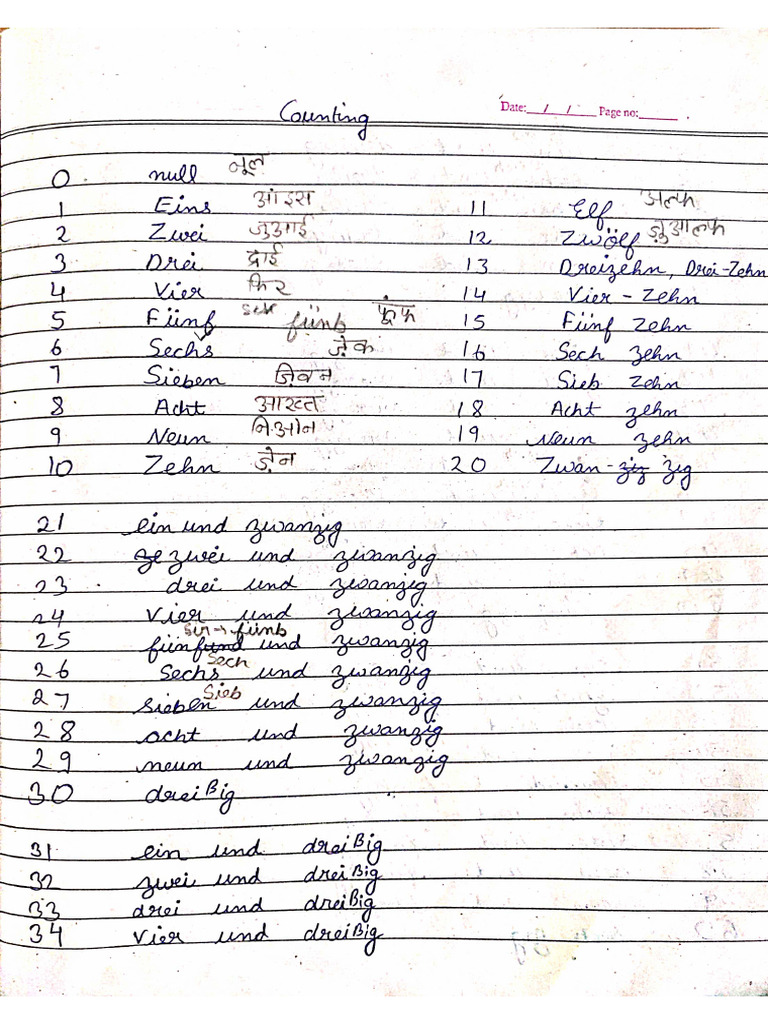 Date: __/__/__ Page no: ____
Counting
0 null नूल
1 Eins आंइस 11 Elf अल्फ
2 Zwei ज़ुआई 12 Zwölf ज़ुआल्फ
3 Drei द्राई 13 Dreizehn, Drei-Zehn
4 Vier फिर 14 Vier - Zehn
5 Fünf sir fünb फूंफ 15 Fünf Zehn
6 Sechs ज़ेक 16 Sech zehn
7 Sieben ज़िबन 17 Sieb Zehn
8 Acht आख्त 18 Acht zehn
9 Neun निओन 19 Neun zehn
10 Zehn ज़ेन 20 Zwan-ziz zig
21 ein und zwanzig
22 ze zwei und zwanzig
23 drei und zwanzig
24 vier und zwanzig
sir → fünb
25 fünfund und zwanzig
Sech
26 Sechs und zwanzig
Sieb
27 sieben und zwanzig
28 acht und zwanzig
29 neun und zwanzig
30 dreißig
31 ein und dreißig
32 zwei und dreißig
33 drei und dreißig
34 vier und dreißig